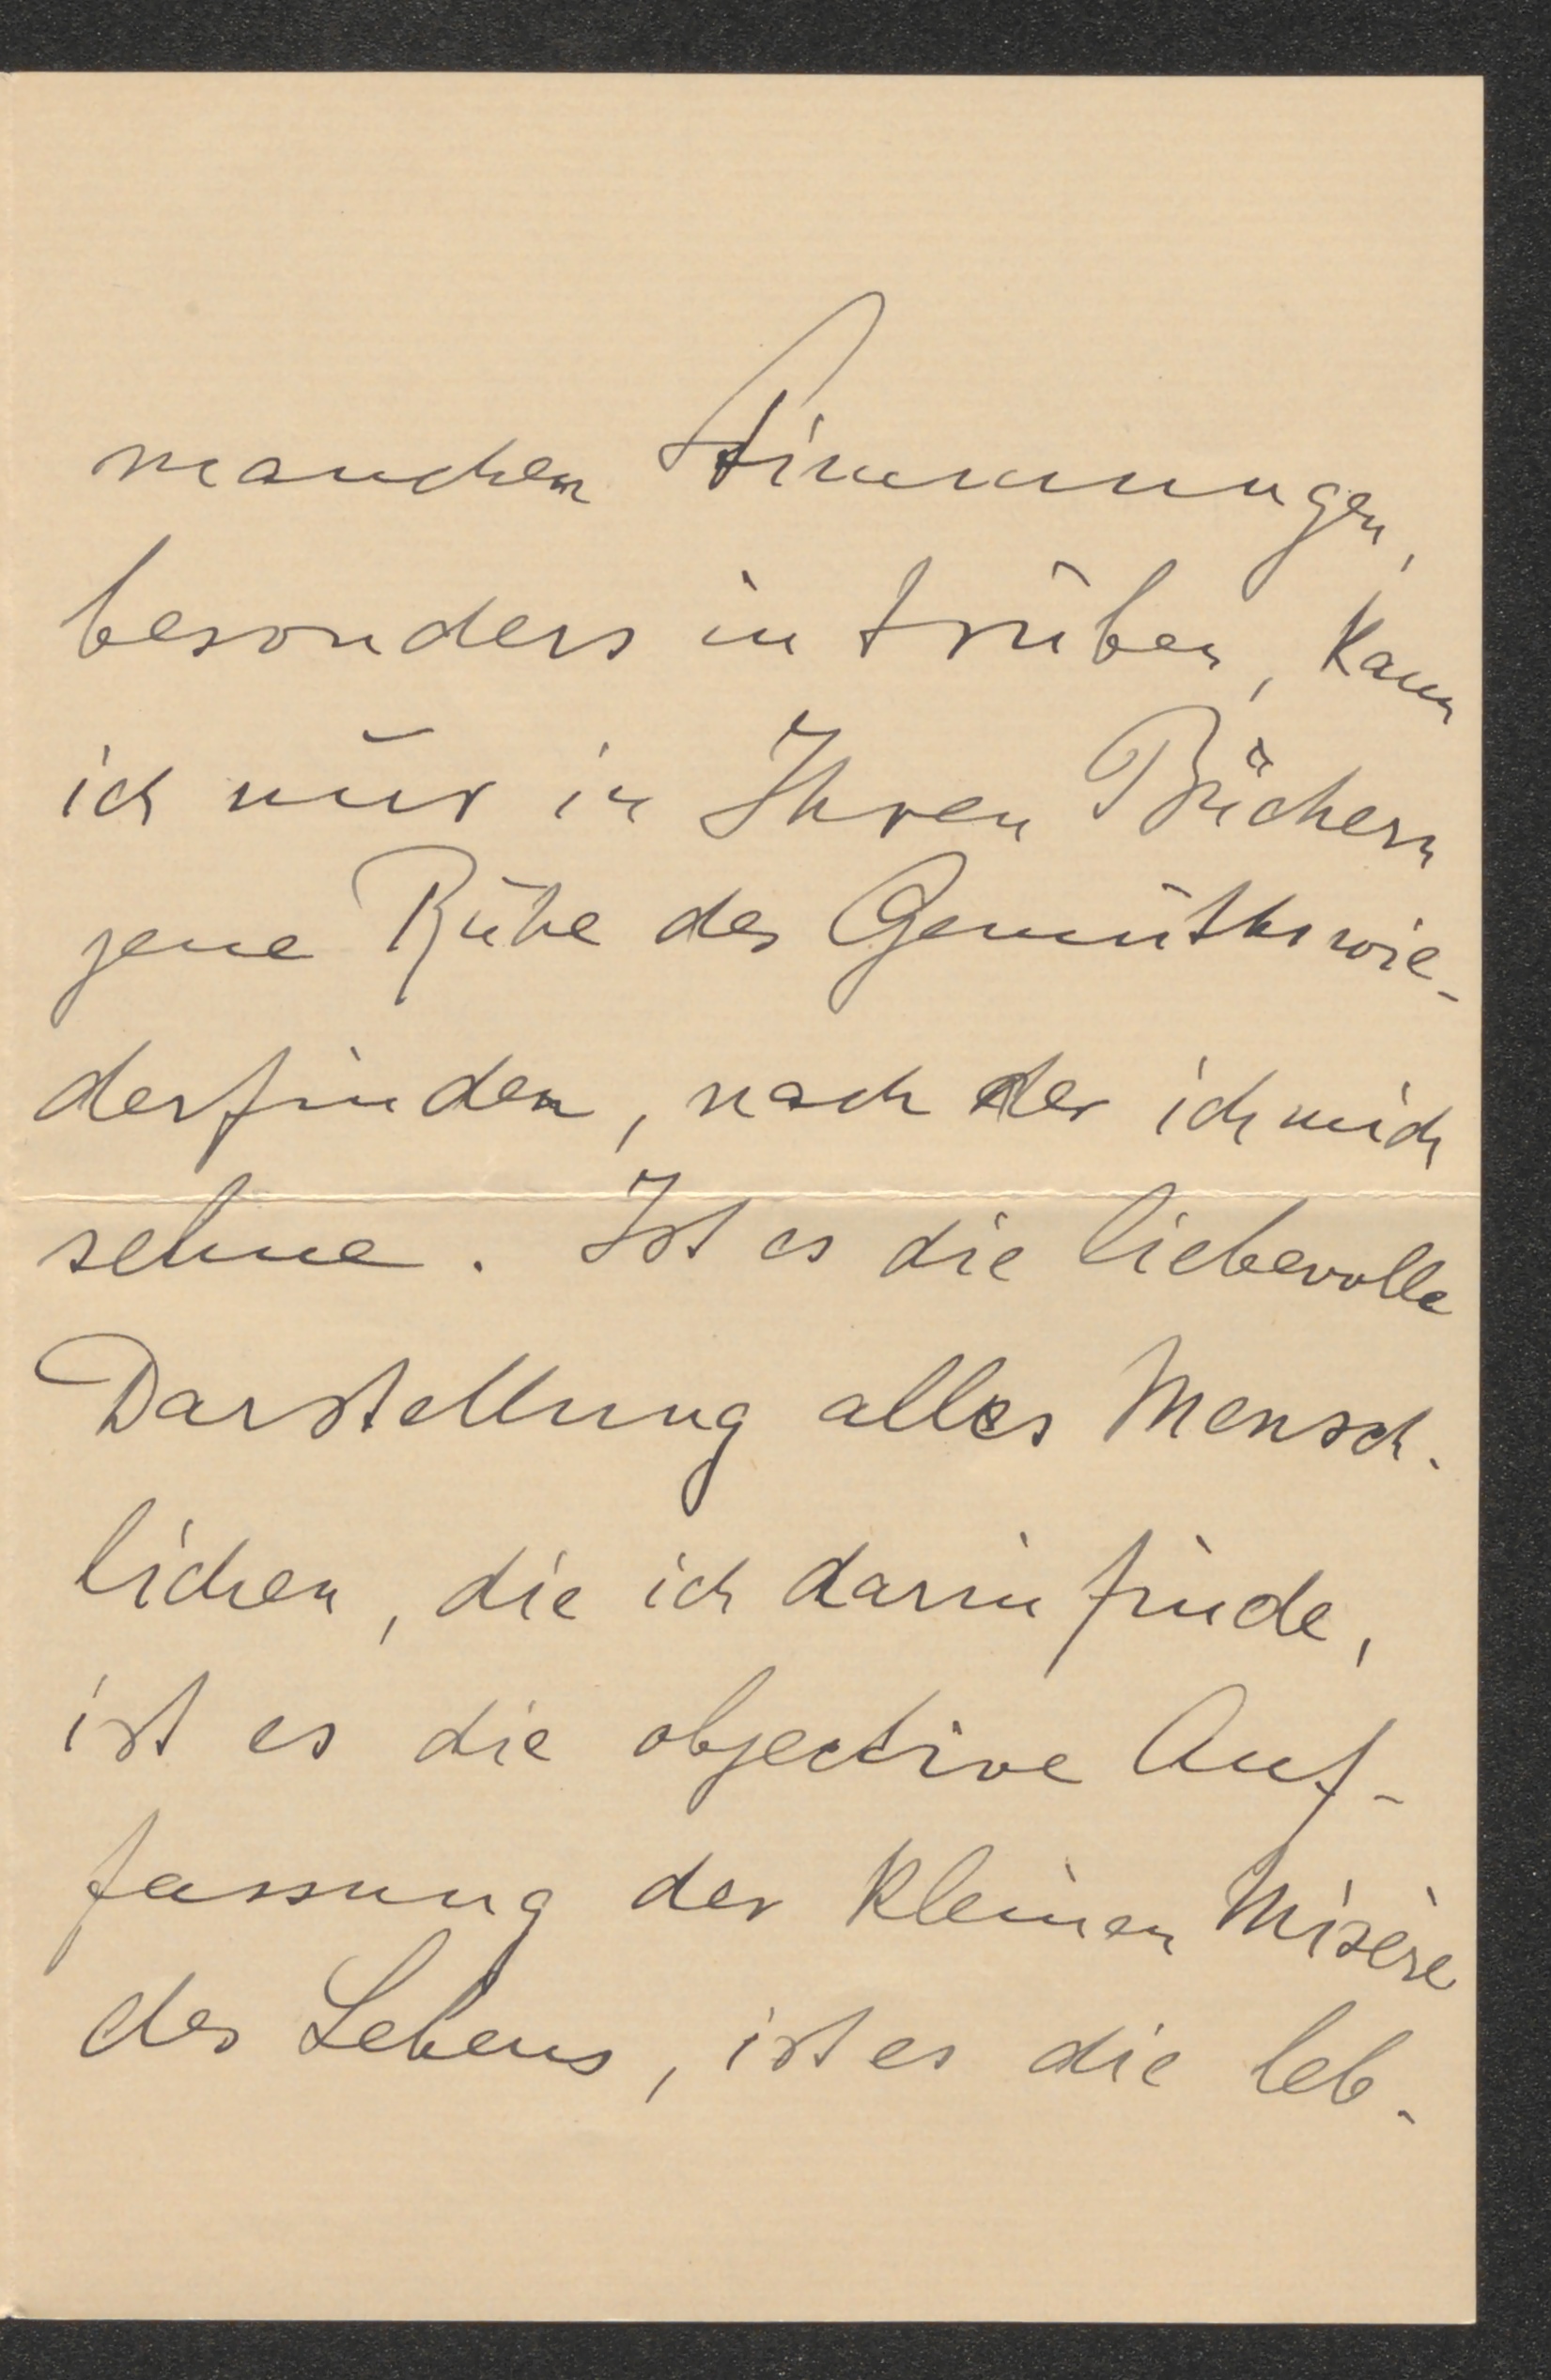 manchen Stimmungen,
besonders in trüben, kann
ich nur in Ihren Büchern
jene Ruhe des Gemüths wie-
derfinden, nach der ich mich
sehne. Ist es die liebevolle
Darstellung alles Mensch-
lichen, die ich darin finde,
ist es die objective Auf-
fassung der kleinen Misère
des Lebens, ist es die leb-